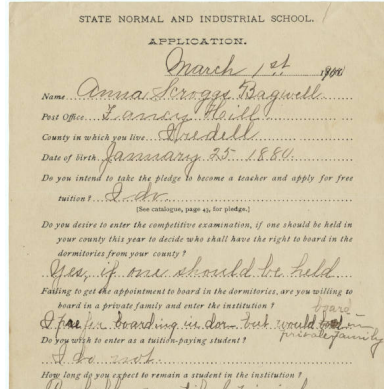 STATE NORMAL AND INDUSTRIAL SCHOOL.
APPLICATION.
March 1st 1900
Name Anna Scroggs Bagwell
Post Office Fancy Hill
County in which you live Iredell
Date of birth January 25 1880
Do you intend to take the pledge to become a teacher and apply for free
tuition? I do
[See catalogue, page 45, for pledge.]
Do you desire to enter the competitive examination, if one should be held in
your county this year to decide who shall have the right to board in the
dormitories from your county?
Yes, if one should be held
Failing to get the appointment to board in the dormitories, are you willing to
board in a private family and enter the institution?
board
I prefer boarding in dor but would in
private family
Do you wish to enter as a tuition-paying student?
I do not
How long do you expect to remain a student in the institution?